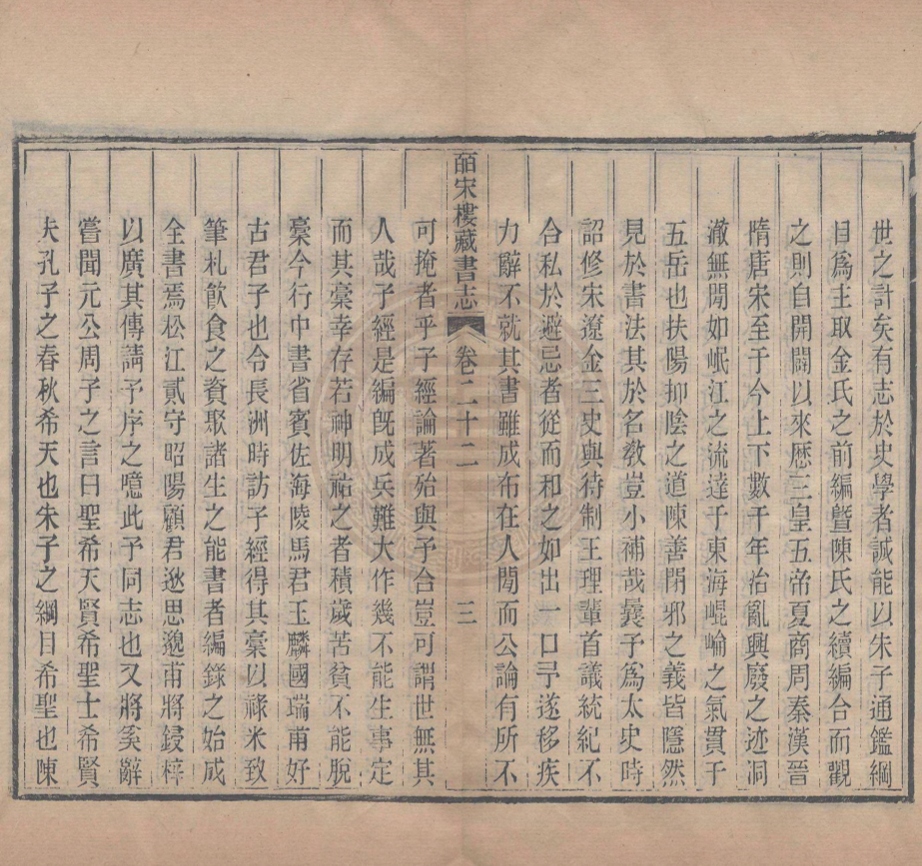 世之計矣有志於史學者誠能以朱子通鑑綱
目爲主取金氏之前編曁陳氏之續編合而觀
之則自開闢以來歷三皇五帝夏商周秦漢晉
隋唐宋至于今上下數千年治亂興廢之迹洞
澈無閒如岷江之流達于東海崐崘之氣貫于
五岳也扶陽抑陰之道陳善閉邪之義皆隱然
見於書法其於名敎豈小補哉曩子爲太史時
詔修宋遼金三史與待制王理輩首議統紀不
合私於避忌者從而和之如出一口予遂移疾
力辭不就其書雖成布在人閒而公論有所不
皕宋樓藏書志 卷二十二 三
可掩者乎子經論著殆與予合豈可謂世無其
人哉子經是編旣成兵難大作幾不能生事定
而其稾幸存若神明祐之者積歲苦貧不能脫
稾今行中書省賓佐海陵馬君玉麟國瑞甫好
古君子也令長洲時訪子經得其稾以祿米致
筆札飮食之資聚諸生之能書者編錄之始成
全書焉松江貳守昭陽顧君逖思邈甫將鋟梓
以廣其傳請予序之噫此予同志也又將奚辭
嘗聞元公周子之言曰聖希天賢希聖士希賢
夫孔子之春秋希天也朱子之綱目希聖也陳